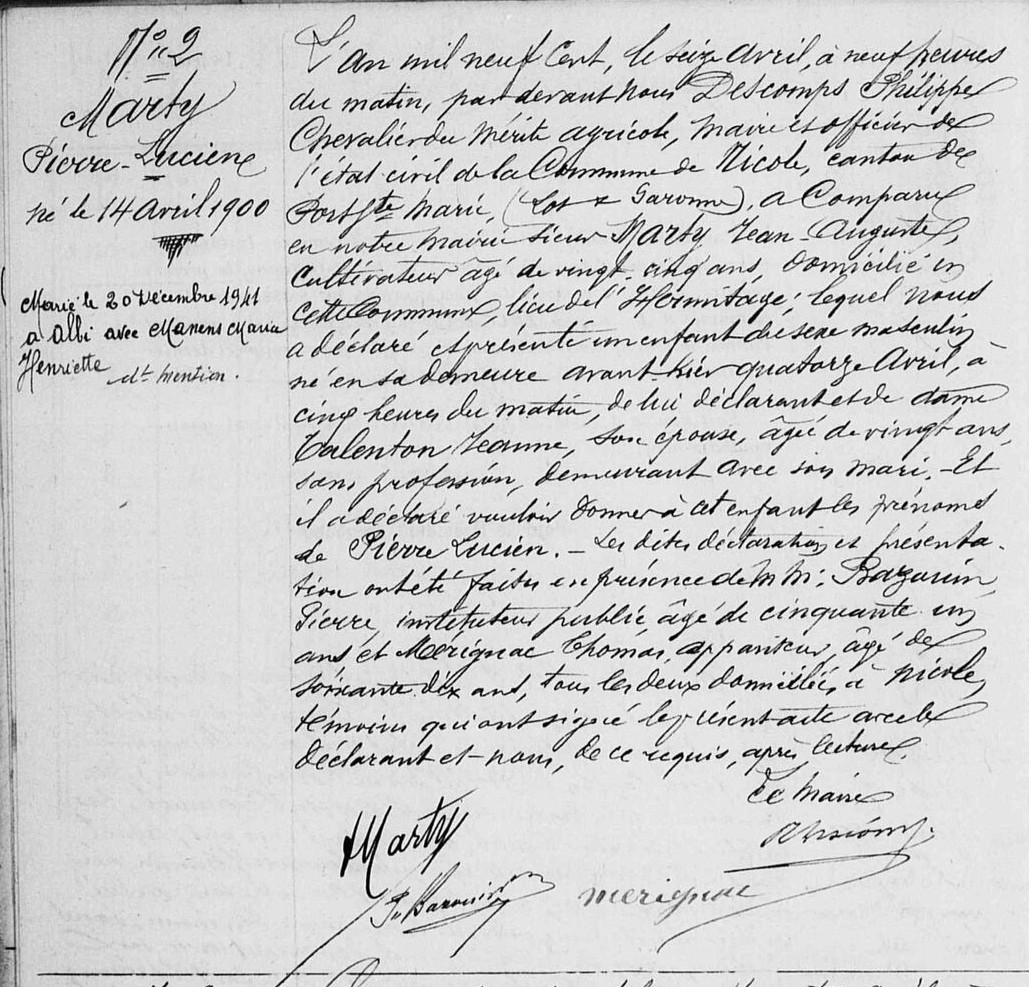 N° 2
Marty
Pierre-Lucien
né le 14 avril 1900
Marié le 20 Décembre 1941
à Albi avec Manens Maria
Henriette
dt mention.
L'an mil neuf Cent, le seize avril, à neuf heures
du matin, par devant nous Descomps Philippe
Chevalier du Mérite agricole, Maire et officier de
l'état civil de la Commune de Nicole, canton de
Port Ste Marie, (Lot & Garonne), a Comparu
en notre Mairie sieur Marty Jean-Auguste,
Cultivateur âgé de vingt-cinq ans, domicilié en
cette Commune, lieu de l'Hermitage; lequel nous
a déclaré et présenté un enfant du sexe masculin
né en sa demeure avant-hier quatorze Avril, à
cinq heures du matin, de lui déclarant et de dame
Talenton Jeanne, son épouse, âgée de vingt ans,
sans profession, demeurant avec son mari. - Et
il a déclaré vouloir donner à cet enfant les prénoms
de Pierre Lucien. - Les dites déclaration et présenta-
tion ont été faites en présence de MM: Bazouin
Pierre, instituteur public âgé de cinquante un
ans et Mérignac Thomas, appariteur, âgé de
soixante dix ans, tous les deux domiciliés à Nicole,
témoins qui ont signé le présent acte avec le
déclarant et nous, de ce requis, après lecture.
Le Maire
Marty
Descomps
P. Bazouin
merignac